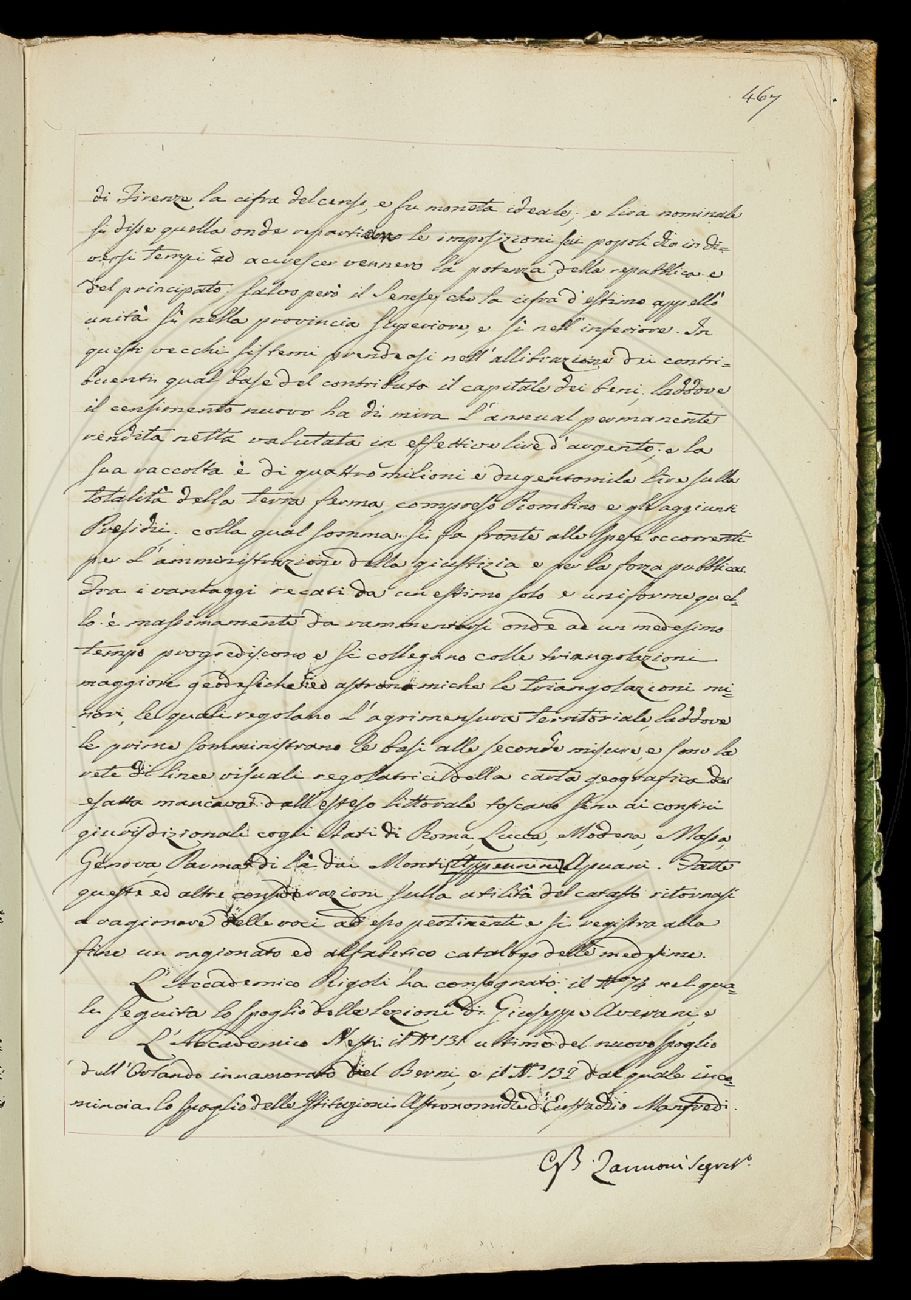 467
di Firenze la cifra del censo, e fu moneta ideale; e lira nominale
si disse quella onde repartirono le imposizioni sui popoli che in di-
versi tempi ad accrescer vennero la potenza della repubblica e
del principato, salvo però il Senese, che la cifra d'estimo appellò
unità sì nella provincia superiore, e sì nell'inferiore. In
questi vecchi sistemi prendeasi nell'allibrazione dei contri-
buenti qual base del contributo il capitale dei beni, laddove
il censimento nuovo ha di mira l'annual permanente
rendita netta valutata in effettive lire d'argento; e la
sua raccolta è di quattro milioni e dugentomila lire sulla
totalità della terra ferma, compreso Piombino e gli aggiunti
Presidii, colla qual somma si fa fronte alle spese occorrenti
per l'amministrazione della giustizia e per la forza pubblica.
Tra i vantaggi recati da un estimo solo e uniforme quel-
lo è massimamente da rammentarsi onde ad un medesimo
tempo progrediscono e si collegano colle triangolazioni
maggiori geodesiche ed astronomiche le triangolazioni mi-
nori, le quali regolano l'agrimensura territoriale, laddove
le prime somministrano le basi alle seconde misure, e sono la
rete di linee visuali regolatrici della carta geografica che
esatta mancava dall'esteso littorale toscano sino ai confini
giurisdizionali cogli Stati di Roma, Lucca, Modena, e Massa,
Genova, Parma di là dai Monti Appennini Apuani. Fatte
queste ed altre considerazioni sulla utilità del catasto ritornasi
a ragionare delle voci ad esso pertinenti e si registra alla
fine un ragionato ed alfabetico catalogo delle medesime.
L'Accademico Rigoli ha consegnato il N° 74 nel qua-
le seguita lo spoglio delle lezioni di Giuseppe Averani, e
L'Accademico Nesti il N° 131 ultimo del nuovo spoglio
dell'Orlando innamorato del Berni, e il N° 132 dal quale inco-
mincia lo spoglio delle Istituzioni Astronomiche di Eustachio Manfredi.
GB. Zannoni Segret°.